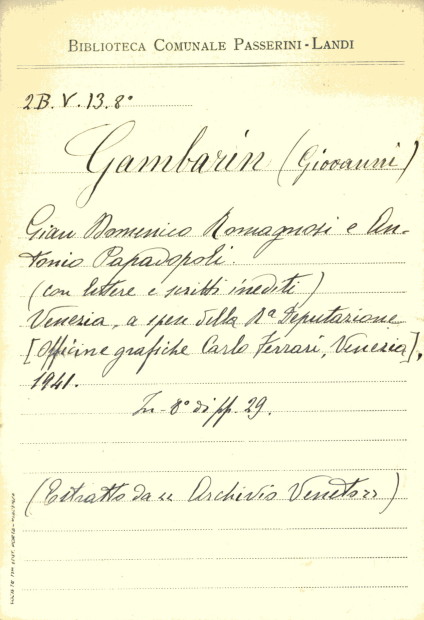 BIBLIOTECA COMUNALE PASSERINI-LANDI
2B.V.13.8°
Gambarin (Giovanni)
Gian Domenico Romagnosi e An-
tonio Papadopoli.
(con lettere e scritti inediti)
Venezia, a spese della Rª Deputazione
[Officine grafiche Carlo Ferrari, Venezia],
1941.
In-8° di pp. 29.
(Estratto da "Archivio Veneto")